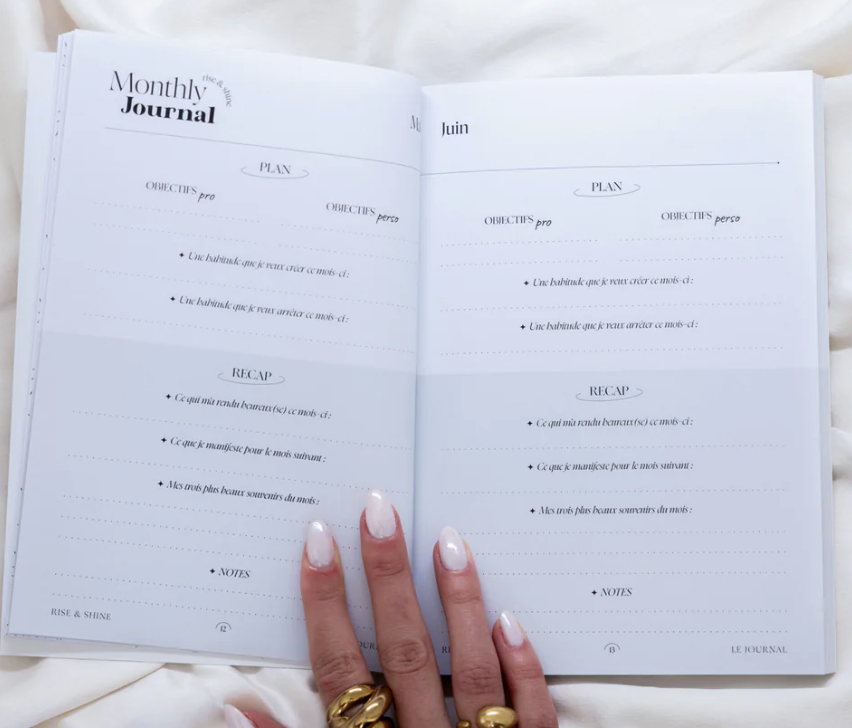 Monthly
rise & shine
Journal
PLAN
OBJECTIFS pro
OBJECTIFS perso
✦ Une habitude que je veux créer ce mois-ci :
✦ Une habitude que je veux arrêter ce mois-ci :
RECAP
✦ Ce qui m'a rendu heureux(se) ce mois-ci :
✦ Ce que je manifeste pour le mois suivant :
✦ Mes trois plus beaux souvenirs du mois :
✦ NOTES
RISE & SHINE
12
Juin
PLAN
OBJECTIFS pro
OBJECTIFS perso
✦ Une habitude que je veux créer ce mois-ci :
✦ Une habitude que je veux arrêter ce mois-ci :
RECAP
✦ Ce qui m'a rendu heureux(se) ce mois-ci :
✦ Ce que je manifeste pour le mois suivant :
✦ Mes trois plus beaux souvenirs du mois :
✦ NOTES
13
LE JOURNAL